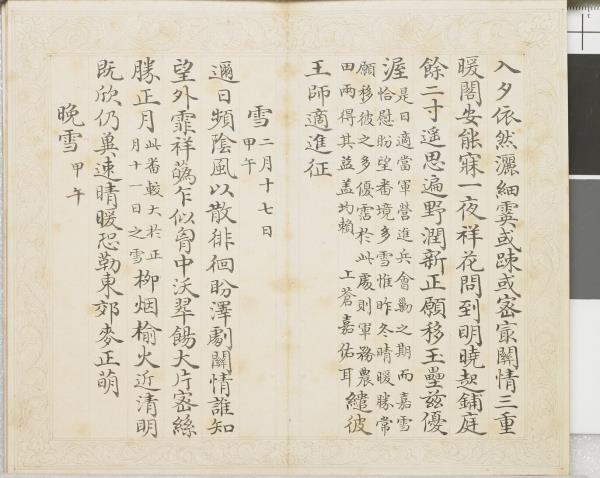 入夕依然灑細霙或踈或密㝡關情三重
暖閣安能寐一夜祥花問到明曉起鋪庭
餘二寸遥思遍野潤新正願移玉壘兹優
渥是日適當軍營進兵會勦之期而嘉雪
恰慰盼望畨境多雪惟昨冬晴暖勝常
願移彼之多優霑於此處則軍務農
田兩得其益盖均賴 上蒼嘉佑耳繾彼
王師適進征
雪二月十七日
甲午
邇日頻陰風以散徘徊盼澤劇關情誰知
望外霏祥蘤乍似胷中沃翠餳大片密絲
勝正月此番較大於正
月十一日之雪柳烟榆火近清明
既欣仍兾速晴暖恐勒東郊麥正萌
晚雪甲午